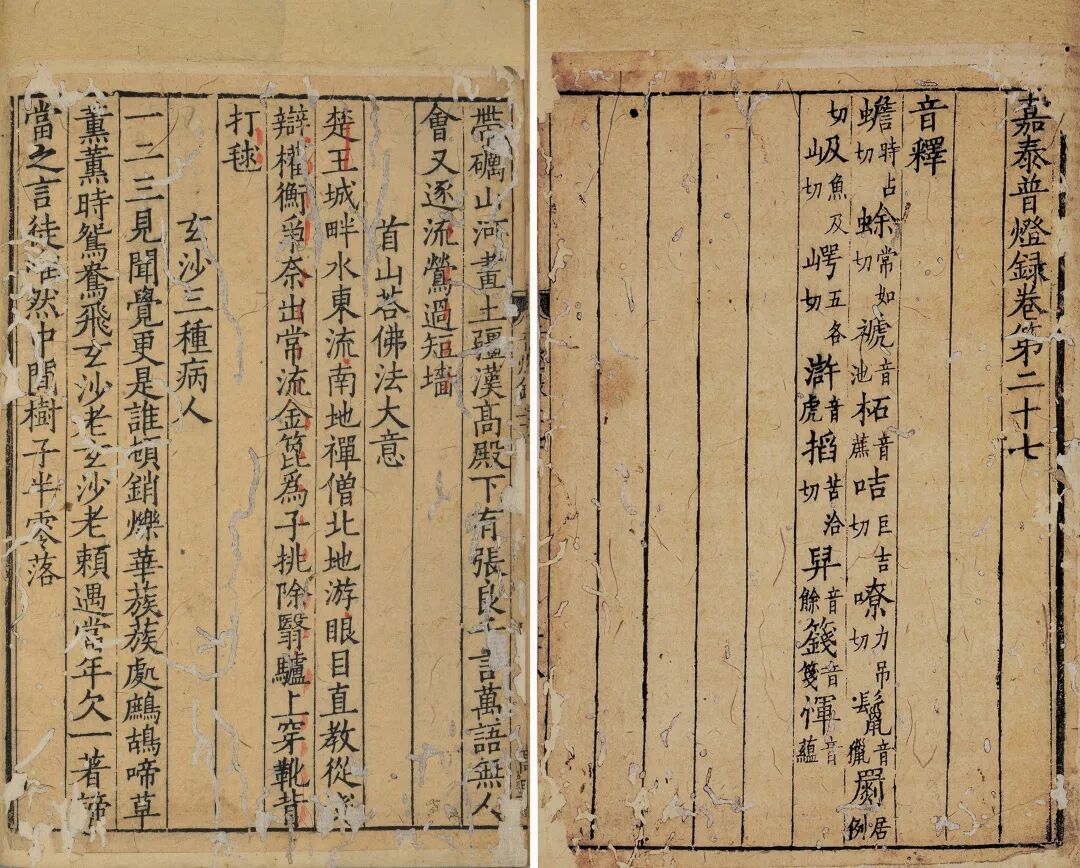 嘉泰普燈録卷第二十七
音釋
蟾時占切蜍常如切褫音池柘音蔗咭巨吉切嘹力吊切鬣音獵罽居例
切岌魚及切崿五各切滸音虎搯苦洽切舁音餘籛音箋惲音蘊
帶礪山河畫土疆漢高殿下有張良千言萬語無人
會又逐流鶯過短墻
首山荅佛法大意
楚王城畔水東流南地禪僧北地游眼目直教從
辯權衡爭奈出常流金篦爲子挑除翳驢上穿靴昔
打毬
玄沙三種病人
一二三見聞覺更是誰頓銷爍華蔟蔟處鷓鴣啼草
薰薰時鴛鴦飛玄沙老玄沙老賴遇當年欠一著諦
當之言徒然中間樹子半零落